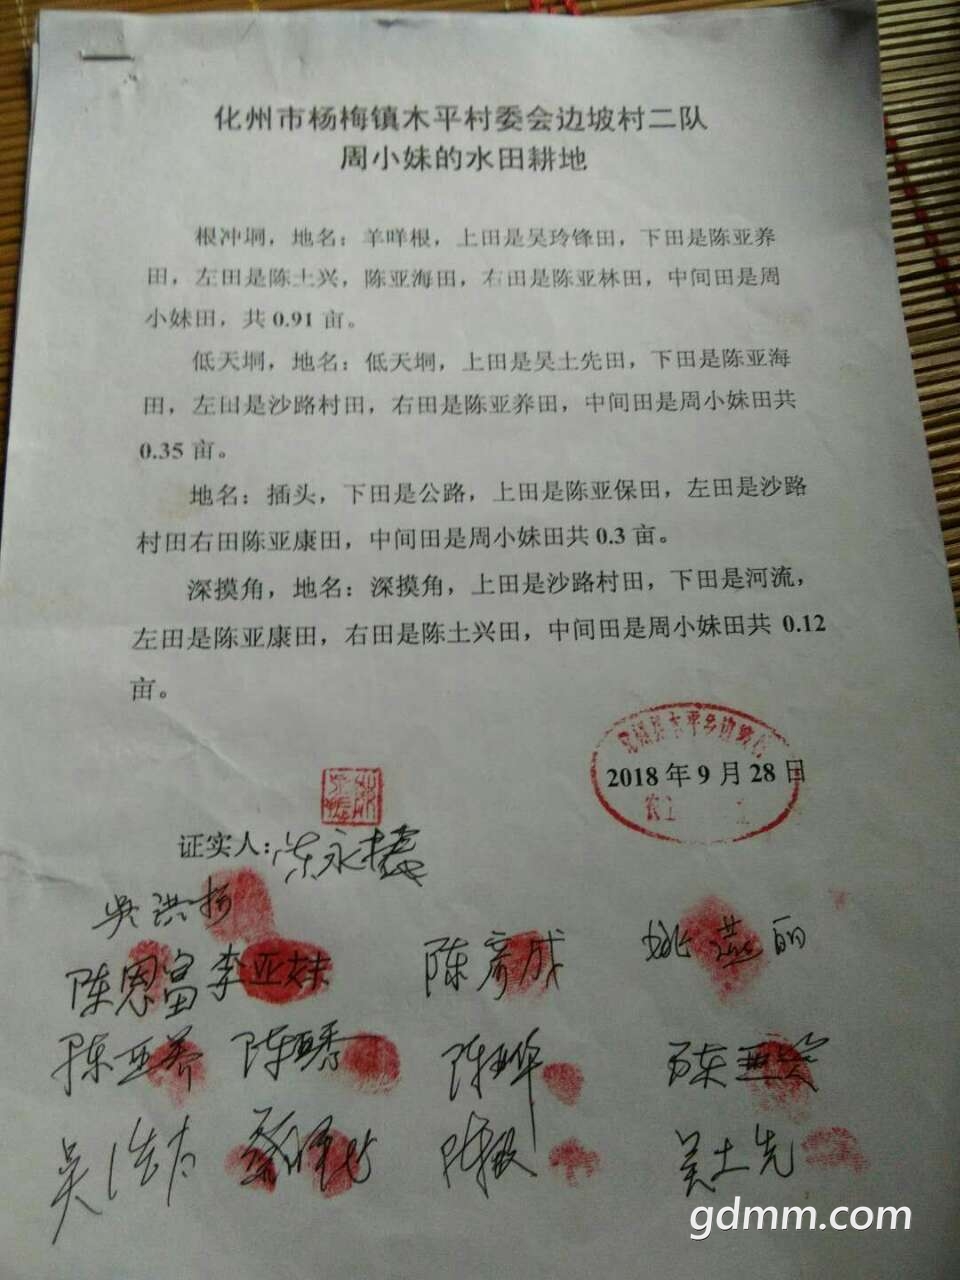 化州市杨梅镇木平村委会边坡村二队
周小妹的水田耕地
根冲垌，地名：羊咩根，上田是吴玲锋田，下田是陈亚养
田，左田是陈土兴，陈亚海田，右田是陈亚林田，中间田是周
小妹田，共 0.91 亩。
低天垌，地名：低天垌，上田是吴土先田，下田是陈亚海
田，左田是沙路村田，右田是陈亚养田，中间田是周小妹田共
0.35 亩。
地名：插头，下田是公路，上田是陈亚保田，左田是沙路
村田右田陈亚康田，中间田是周小妹田共 0.3 亩。
深摸角，地名：深摸角，上田是沙路村田，下田是河流，
左田是陈亚康田，右田是陈土兴田，中间田是周小妹田共 0.12
亩。
2018 年 9 月 28 日
证实人：陈永
吴洪扬
陈恩富 李亚妹 陈彦成 姚燕丽
陈亚养 陈亚秀 陈亚华 陈亚
吴 陈 吴土先
gdmm.com